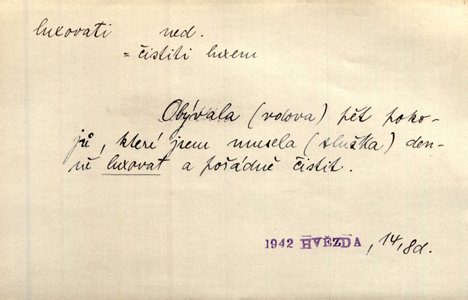 luxovati ned.
= čistiti luxem
Obývala (vdova) pět poko-
jů, které jsem musela (služka) den-
ně luxovat a pořádně čistit.
1942 HVĚZDA, 14,8d.